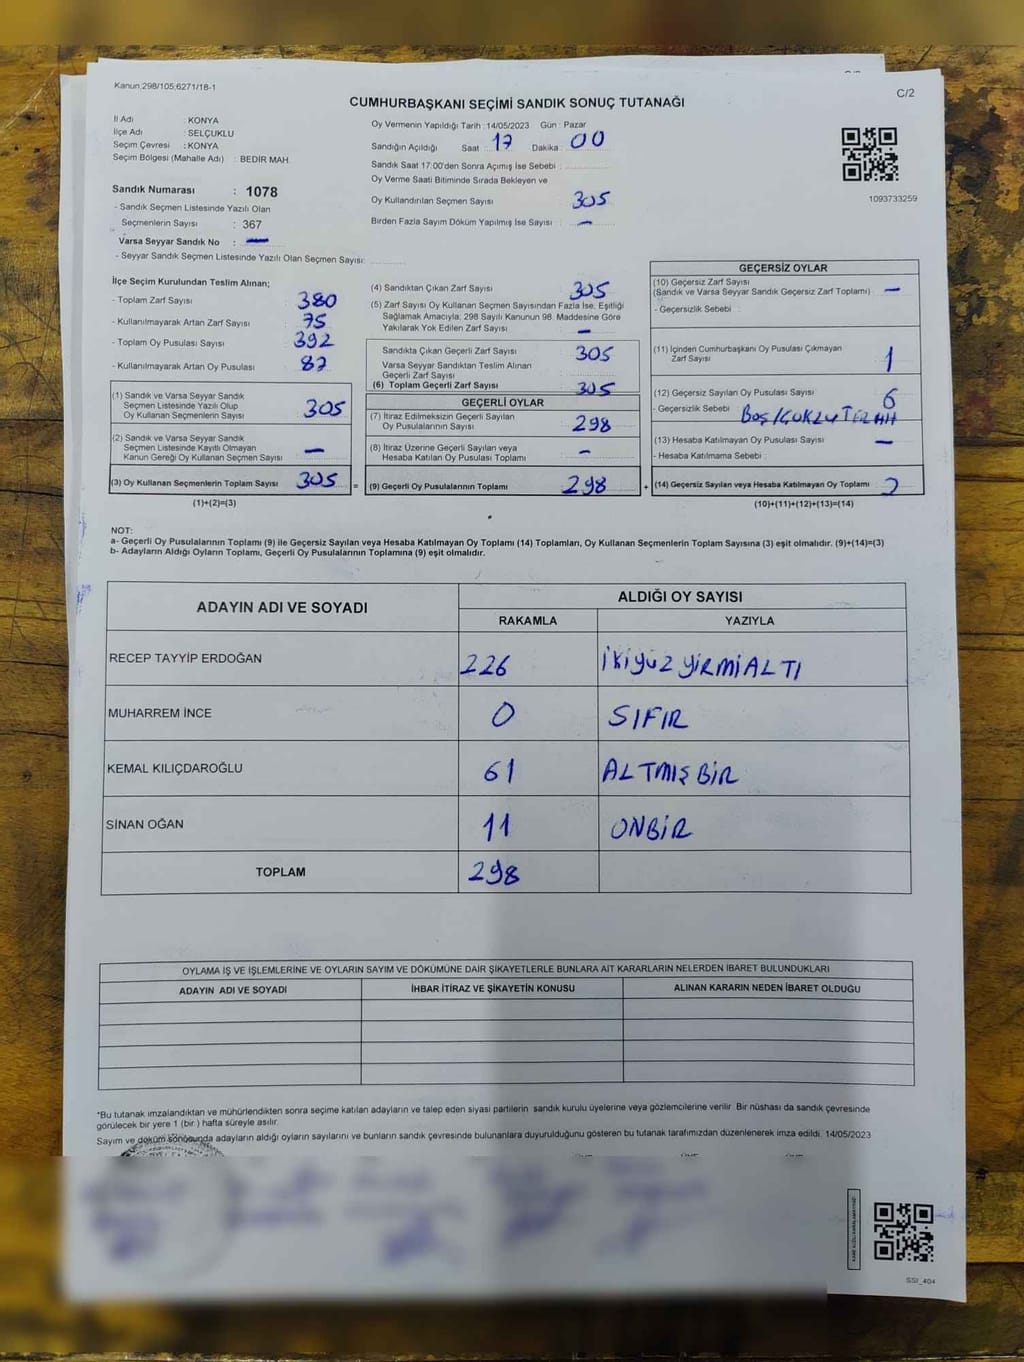 Kanun;298/105;6271/18-1
C/2
CUMHURBAŞKANI SEÇİMİ SANDIK SONUÇ TUTANAĞI
İl Adı : KONYA
İlçe Adı : SELÇUKLU
Seçim Çevresi : KONYA
Seçim Bölgesi (Mahalle Adı) : BEDİR MAH.
Sandık Numarası : 1078
- Sandık Seçmen Listesinde Yazılı Olan
Seçmenlerin Sayısı : 367
Varsa Seyyar Sandık No : —
- Seyyar Sandık Seçmen Listesinde Yazılı Olan Seçmen Sayısı:
Oy Vermenin Yapıldığı Tarih : 14/05/2023 Gün : Pazar
Sandığın Açıldığı Saat : 17 Dakika : 00
Sandık Saat 17:00'den Sonra Açımış İse Sebebi :
Oy Verme Saati Bitiminde Sırada Bekleyen ve
Oy Kullandırılan Seçmen Sayısı : 305
Birden Fazla Sayım Döküm Yapılmış İse Sayısı : —
1093733259
İlçe Seçim Kurulundan Teslim Alınan;
- Toplam Zarf Sayısı : 380
- Kullanılmayarak Artan Zarf Sayısı : 75
- Toplam Oy Pusulası Sayısı : 392
- Kullanılmayarak Artan Oy Pusulası : 87
(1) Sandık ve Varsa Seyyar Sandık
Seçmen Listesinde Yazılı Olup
Oy Kullanan Seçmenlerin Sayısı : 305
(2) Sandık ve Varsa Seyyar Sandık
Seçmen Listesinde Kayıtlı Olmayan
Kanun Gereği Oy Kullanan Seçmen Sayısı : —
(3) Oy Kullanan Seçmenlerin Toplam Sayısı : 305
(1)+(2)=(3)
(4) Sandıktan Çıkan Zarf Sayısı : 305
(5) Zarf Sayısı Oy Kullanan Seçmen Sayısından Fazla İse, Eşitliği
Sağlamak Amacıyla; 298 Sayılı Kanunun 98. Maddesine Göre
Yakılarak Yok Edilen Zarf Sayısı : —
Sandıkta Çıkan Geçerli Zarf Sayısı : 305
Varsa Seyyar Sandıktan Teslim Alınan
Geçerli Zarf Sayısı :
(6) Toplam Geçerli Zarf Sayısı : 305
GEÇERLİ OYLAR
(7) İtiraz Edilmeksizin Geçerli Sayılan
Oy Pusulalarının Sayısı : 298
(8) İtiraz Üzerine Geçerli Sayılan veya
Hesaba Katılan Oy Pusulası Toplamı : —
= (9) Geçerli Oy Pusulalarının Toplamı : 298 +
GEÇERSİZ OYLAR
(10) Geçersiz Zarf Sayısı
(Sandık ve Varsa Seyyar Sandık Geçersiz Zarf Toplamı) : —
- Geçersizlik Sebebi :
(11) İçinden Cumhurbaşkanı Oy Pusulası Çıkmayan
Zarf Sayısı : 1
(12) Geçersiz Sayılan Oy Pusulası Sayısı : 6
- Geçersizlik Sebebi : BOŞ/ÇOKLU
(13) Hesaba Katılmayan Oy Pusulası Sayısı : —
- Hesaba Katılmama Sebebi :
(14) Geçersiz Sayılan veya Hesaba Katılmayan Oy Toplamı : 7
(10)+(11)+(12)+(13)=(14)
NOT:
a- Geçerli Oy Pusulalarının Toplamı (9) ile Geçersiz Sayılan veya Hesaba Katılmayan Oy Toplamı (14) Toplamları, Oy Kullanan Seçmenlerin Toplam Sayısına (3) eşit olmalıdır. (9)+(14)=(3)
b- Adayların Aldığı Oyların Toplamı, Geçerli Oy Pusulalarının Toplamına (9) eşit olmalıdır.
ADAYIN ADI VE SOYADI
ALDIĞI OY SAYISI
RAKAMLA YAZIYLA
RECEP TAYYİP ERDOĞAN 226 İKİYÜZ YİRMİALTI
MUHARREM İNCE 0 SIFIR
KEMAL KILIÇDAROĞLU 61 ALTMIŞBİR
SİNAN OĞAN 11 ONBİR
TOPLAM 298
OYLAMA İŞ VE İŞLEMLERİNE VE OYLARIN SAYIM VE DÖKÜMÜNE DAİR ŞİKAYETLERLE BUNLARA AİT KARARLARIN NELERDEN İBARET BULUNDUKLARI
ADAYIN ADI VE SOYADI İHBAR İTİRAZ VE ŞİKAYETİN KONUSU ALINAN KARARIN NEDEN İBARET OLDUĞU
*Bu tutanak imzalandıktan ve mühürlendikten sonra seçime katılan adayların ve talep eden siyasi partilerin sandık kurulu üyelerine veya gözlemcilerine verilir. Bir nüshası da sandık çevresinde
görülecek bir yere 1 (bir ) hafta süreyle asılır.
Sayım ve döküm sonucunda adayların aldığı oyların sayılarını ve bunların sandık çevresinde bulunanlara duyurulduğunu gösteren bu tutanak tarafımızdan düzenlenerek imza edildi. 14/05/2023
SSI_404